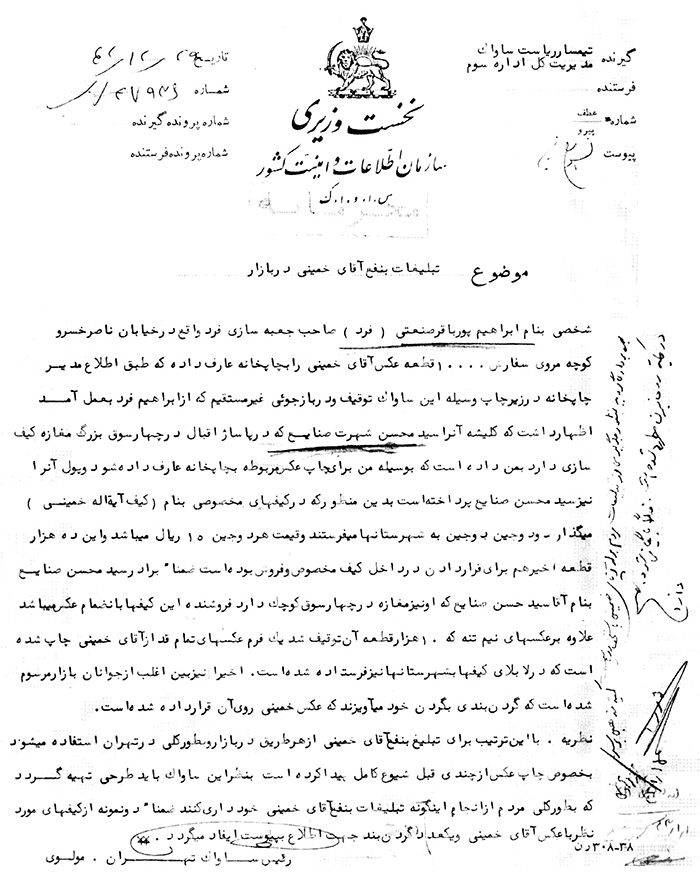 گیرنده تیمسار ریاست ساواك
مدیریت کل اداره سوم
فرستنده
شماره: عطف
پیرو
پیوست
تاریخ
شماره
شماره پرونده گیرنده
شماره پرونده فرستنده
نخست وزیری
سازمان اطلاعات و امنیت کشور
س.ا.و.ا.ك
موضوع تبلیغات بنفع آقای خمینی در بازار
شخصی بنام ابراهیم پورباقرصنعتی ( فرد ) صاحب جعبه سازی فرد واقع درخیابان ناصرخسرو
کوچه مروی سفارش ۱۰۰۰۰ قطعه عکس آقای خمینی را بچاپخانه عارف داده که طبق اطلاع مدیر
چاپخانه درزیرچاپ وسیله این ساواك توقیف ودربازجوئی غیرمستقیم که ازابراهیم فرد بعمل آمد
اظهارداشت که کلیشه آنرا سید محسن شهرت صنایع که درپاساژ اقبال درچهارسوق بزرگ مغازه کیف
سازی دارد بمن داده است که بوسیله من برای چاپ عکس مربوطه بچاپخانه عارف داده شود وپول آنرا
نیزسید محسن صنایع پرداخته است بدین منظور که درکیفهای مخصوصی بنام (کیف آیةاله خمینی )
میگذارد ودوجین بدوجین به شهرستانها میفرستند وقیمت هردوجین ۱۵ ریال میباشد واین ده هزار
قطعه اخیرهم برای قراردادن درداخل کیف مخصوص وفروش بوده است ضمنا" برادر سید محسن صنایع
بنام آقا سید حسن صنایع که اونیزمغازه درچهارسوق کوچك دارد فروشنده این کیفها بانضمام عکس میباشد
علاوه برعکسهای نیم تنه که ۱۰هزارقطعه آن توقیف شد یك فرم عکسهای تمام قد ازآقای خمینی چاپ شده
است که درلابلای کیفها بشهرستانها نیزفرستاده شده است. اخیرا نیزبین اغلب ازجوانان بازارمرسوم
شده است که گردن بندی بگردن خود میآویزند که عکس خمینی روی آن قرارداده شده است.
نظریه . بااین ترتیب برای تبلیغ بنفع آقای خمینی ازهرطریق دربازاروبطورکلی درتهران استفاده میشود
بخصوص چاپ عکس ازچندی قبل شیوع کامل پیداکرده است بنظراین ساواك باید طرحی تهیه گردد
که بطورکلی مردم ازانجام اینگونه تبلیغات بنفع آقای خمینی خودداری کنند ضمنا" دونمونه ازکیفهای مورد
نظرباعکس آقای خمینی ویکعدد گردن بند جهت اطلاع بپیوست ایفاد میگردد .
رئیس ساواك تهران . مولوی
۳۰۸-۳۸